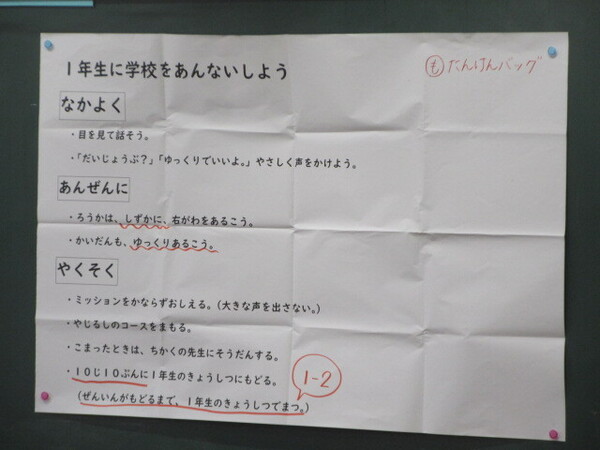 １年生に学校をあんないしよう
㋲たんけんバッグ
なかよく
・目を見て話そう。
・「だいじょうぶ？」「ゆっくりでいいよ。」やさしく声をかけよう。
あんぜんに
・ろうかは、しずかに、右がわをあるこう。
・かいだんも、ゆっくりあるこう。
やくそく
・ミッションをかならずおしえる。（大きな声を出さない。）
・やじるしのコースをまもる。
・こまったときは、ちかくの先生にそうだんする。
・１０じ１０ぷんに１年生のきょうしつにもどる。
1-2
（ぜんいんがもどるまで、１年生のきょうしつでまつ。）